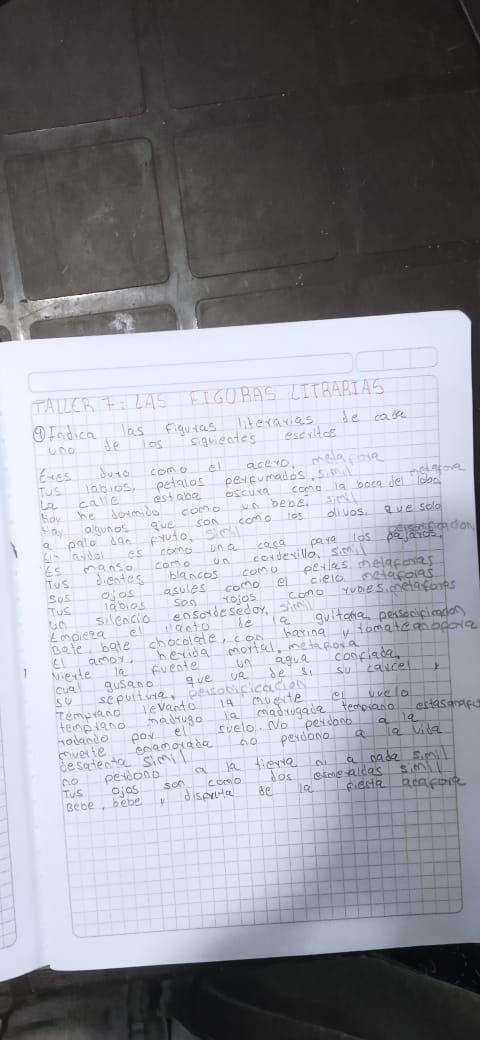 TALLER 7: LAS FIGURAS LITRARIAS
① Indica las figuras literarias de cada
uno de los siguientes escritos
Eres duro como el acero, metafora
Tus labios, petalos perfumados, simil
La calle estaba oscura como la boca del lobo, metafora
Hoy he dormido como un bebe, simil
Hay algunos que son como los olivos, que solo
a palo dan fruto, simil
Un arbol es como una casa para los pajaros, personificacion
Es manso como un corderillo, simil
Tus dientes blancos como perlas metaforas
Sos ojos asules como el cielo metaforas
Tus labios son rojos como rubies, metaforas
Un silencio ensordesedor, simil
Empieza el llanto de la guitarra, personificacion
Bate, bate chocolate, con harina y tomate
El amor, herida mortal, metafora
vierte la fuente un agua confiada,
cual gusano que va de si su carcel y
su sepultura, personificacion
Temprano levanto la muerte el vuelo
temprano madrugo la madrugada temprano estas
rodando por el suelo. No perdono a la
muerte enamorada no perdono a la vida
desatenta simil
no perdono a la tierra ni a nada simil
Tus ojos son como dos esmeraldas simil
Bebe, bebe y disfruta de la fiesta